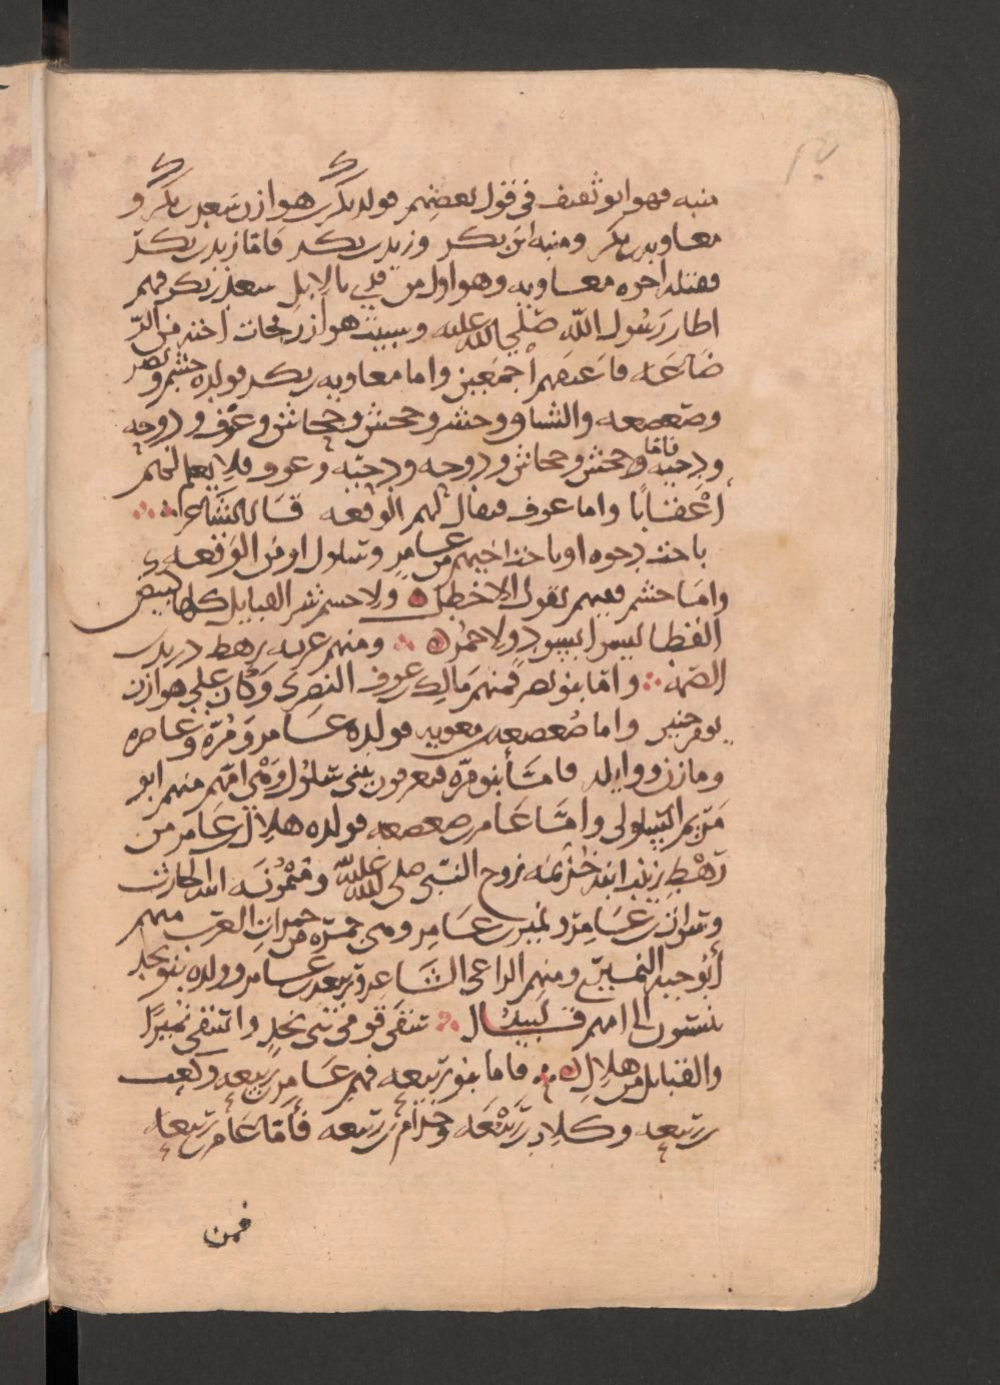 منبه فهو ابو ثقيف فى قول بعضهم فولد بكر بن هوازن سعد بن بكر و
معاويه بن بكر ومنبه ابن بكر وزيد بن بكر فاما زيد بن بكر
فقتله اخوه معاويه وهو اول من فدي بالابل سعد بن بكر فهم
اظار رسول الله صلي الله عليه وسبيت هوازن فجات اخته من الر
ضاعه فاعتقهم اجمعين واما معاويه بن بكر فولده جشم ونصر
وصعصعه والسباق وجسر وجحش وجحاش وعوف ودوحه
ودحيه فاما جحش وجحاش ودوحه ودحيه وعوف فلا يعلم لهم
اعقابا واما عوف فيقال لهم الوقعه قال الشاعر
يا اخت دحوه او يا اخت اخيهم من عامر وسلول او من الوقعه
واما جشم ففيهم يقول الاخطل ولا جسم شر القبايل كلها كبيض
القطا ليسوا بسود ولا حمر ومنهم غزيه رهط دريد بن
الصمه واما بنو نصر فمنهم مالك بن عوف النصرى وكان علي هوازن
يوم حنين واما صعصعه بن معويه فولده عامر ومرة وغاضره
ومازن ووايله فاما بنو مرّه فيعرفون ببنى سلول وهى امهم منهم ابو
مريم السلولى واما عامر بن صعصعه فولده هلال بن عامر من
رهط زينب ابنه خزيمه زوج النبى صلى الله عليه وميمونه ابنه الحارث
وسواة بن عامر ونمير بن عامر وهى جمرة من جمرات العرب منهم
أبو حيه النميرى ومنهم الراعى الشاعر وربيعه بن عامر وولده بنو مجد
ينسبون الى امهم قال لبيد تنقى قومى بنى مجد واسقى نميرا
والقبايل من هلال فاما بنو ربيعه فهم عامر بن ربيعه وكعب
بن ربيعه وكلاب بن ربيعه وحدام بن ربيعه فأما عامر بن ربيعه
فمن